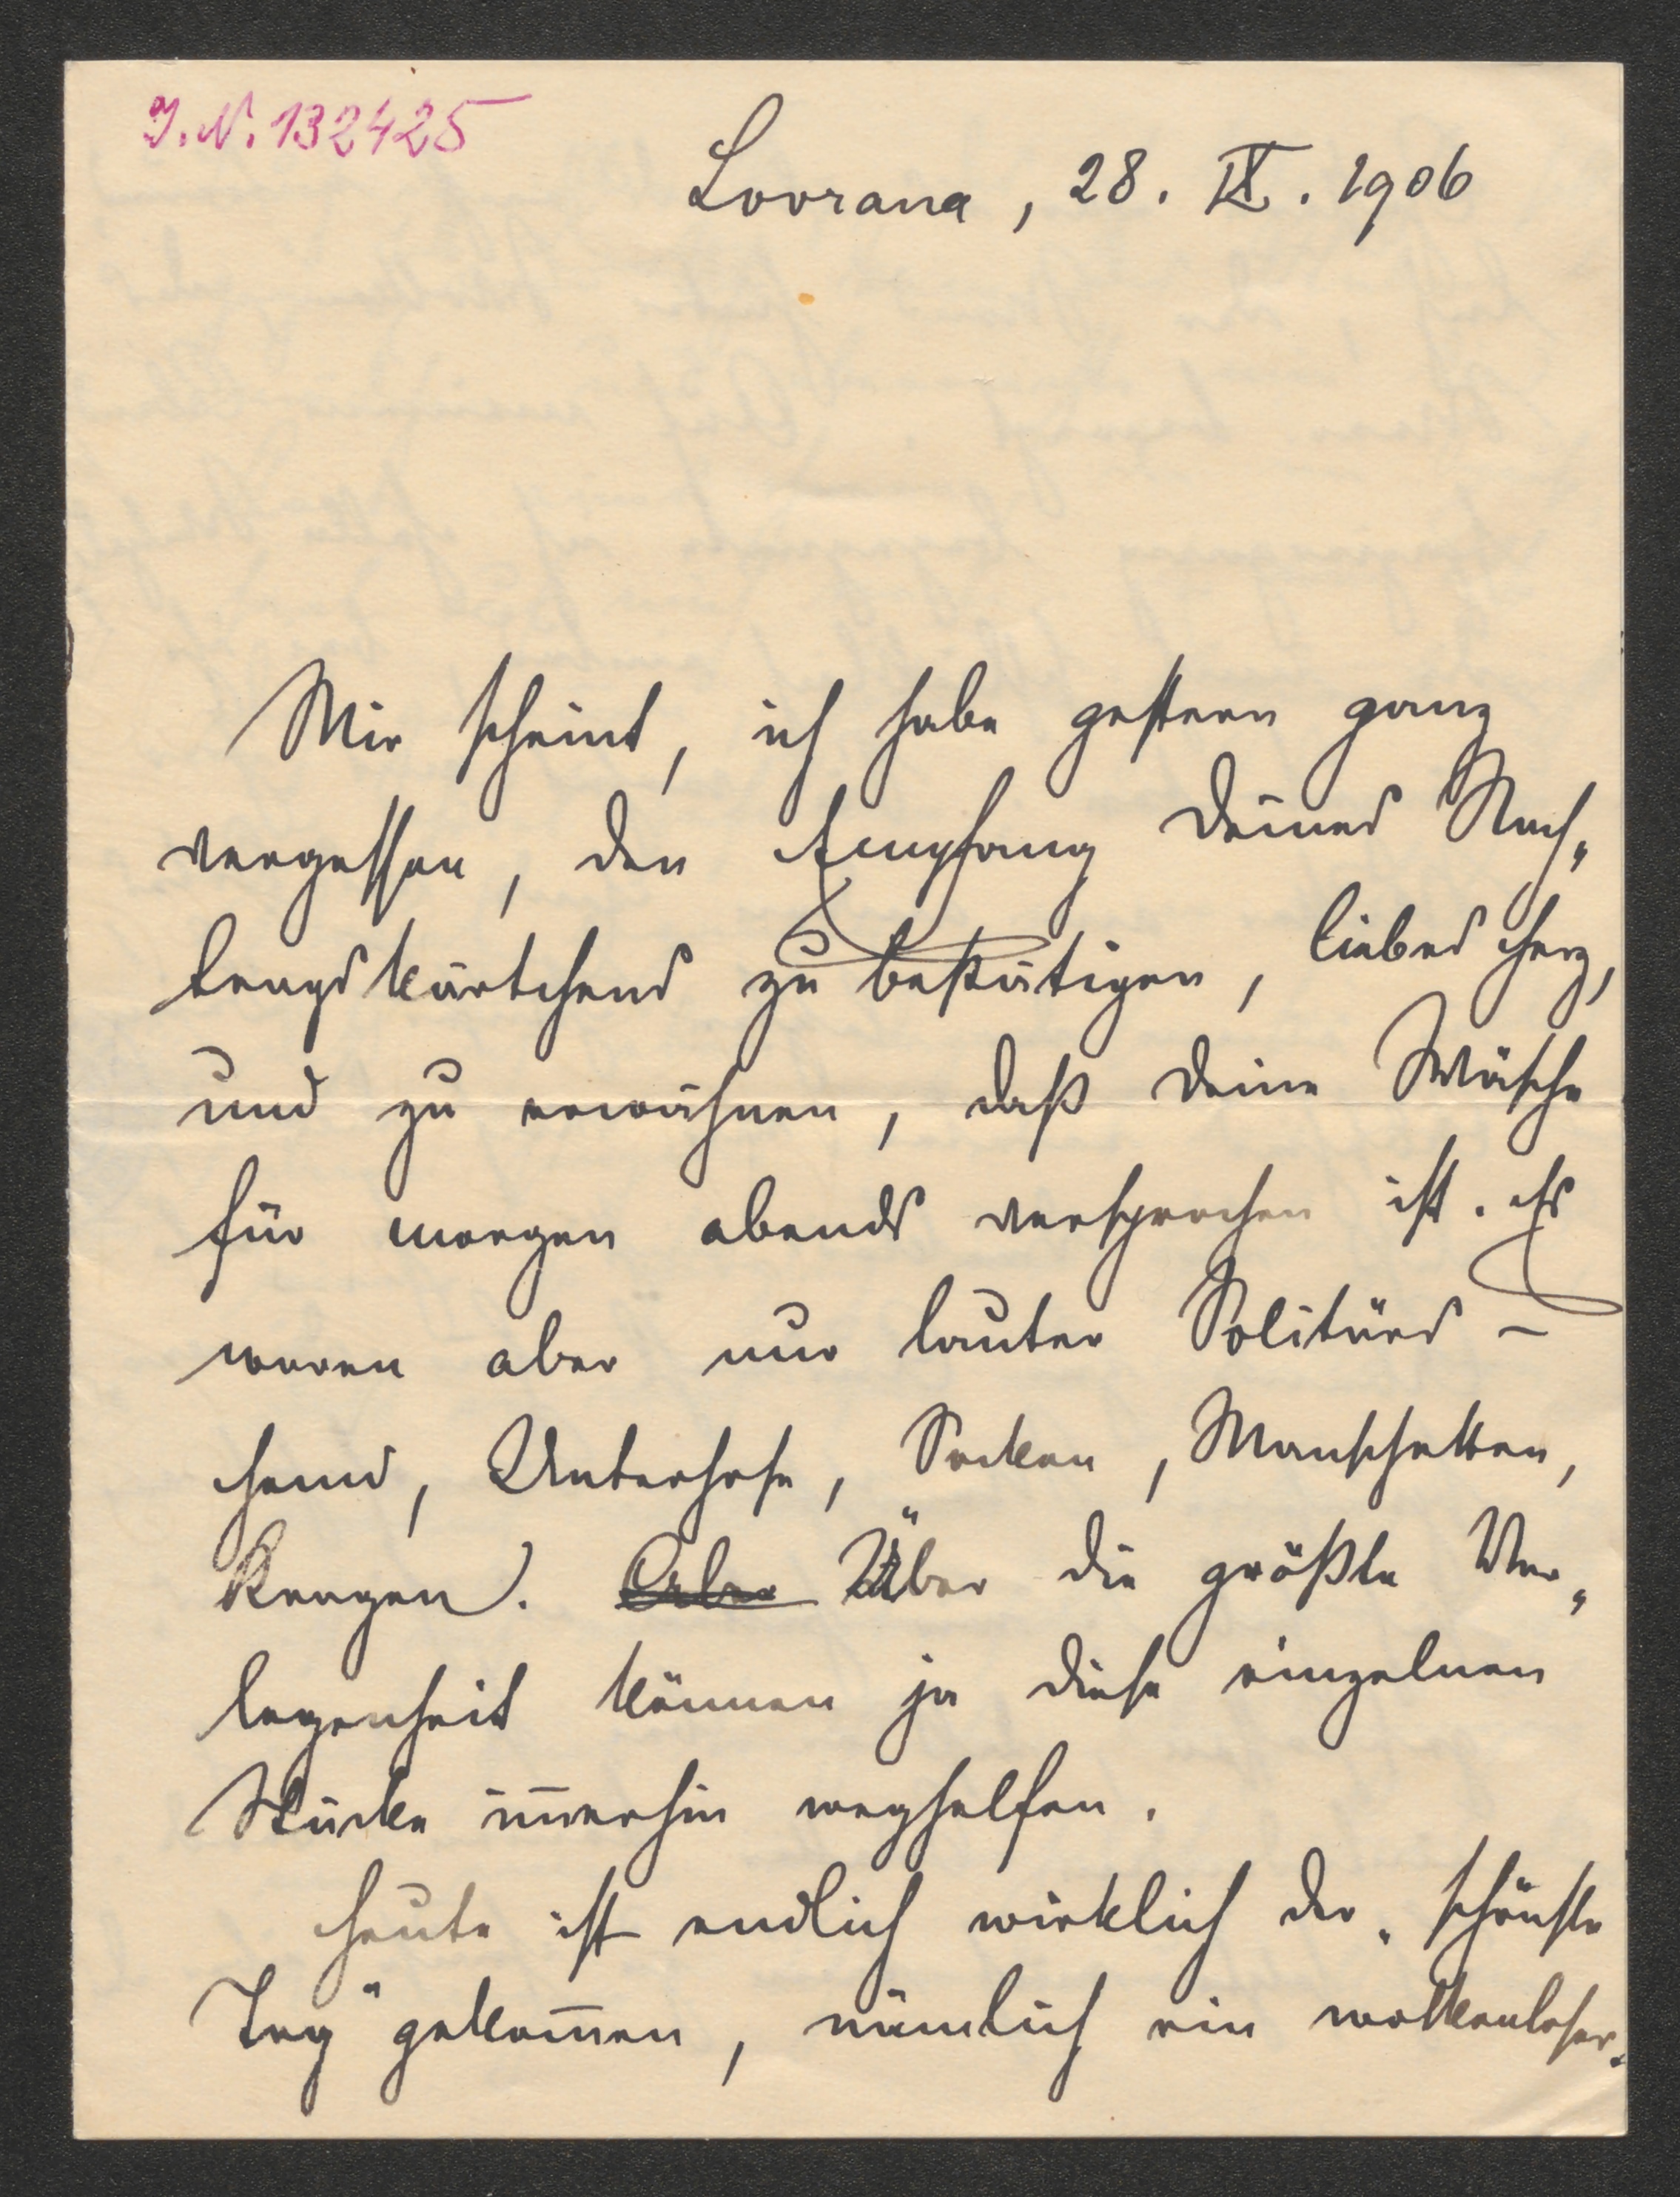 J.N. 132425
Lovrana, 28. IX. 1906
Mir scheint, ich habe gestern ganz
vergessen, den Empfang Deines Nach„
tragskärtchens zu bestätigen, liebes Herz,
und zu erwähnen, daß Deine Wäsche
für morgen abends versprochen ist. Es
waren aber nur lauter Solitärs –
Hemd, Unterhose, Socken, Manschetten,
Kragen. Aber Über die größte Ver„
legenheit können ja diese einzelnen
Stücke im̄erhin weghelfen.
Heute ist endlich wirklich der „schönste
Tag“ gekom̄en, nämlich ein wolkenloser.